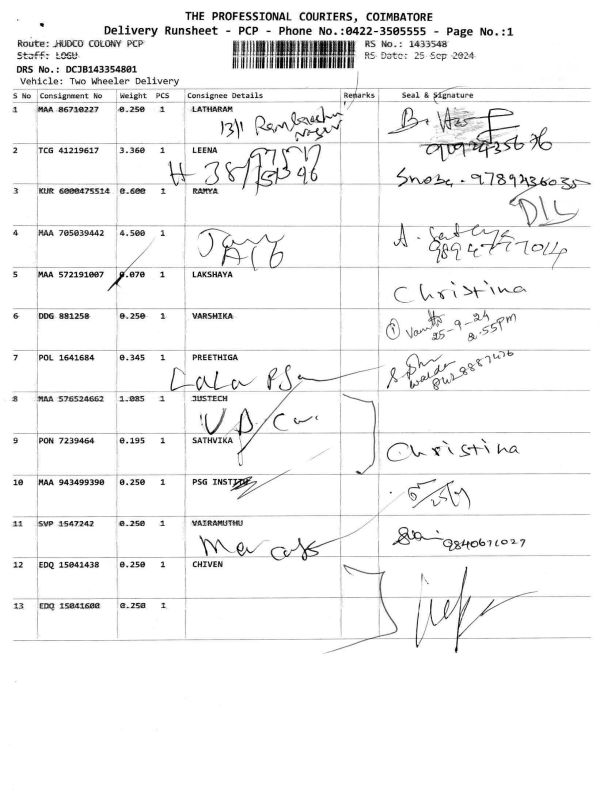 THE PROFESSIONAL COURIERS, COIMBATORE
Delivery Runsheet - PCP - Phone No.:0422-3505555 - Page No.:1
Route: HUDCO COLONY PCP
RS No.: 1433548
Staff: LOGU
RS Date: 25 Sep 2024
DRS No.: DCJB143354801
Vehicle: Two Wheeler Delivery
S No Consignment No Weight PCS Consignee Details Remarks Seal & Signature
1 MAA 86710227 0.250 1 LATHARAM
13/1
2 TCG 41219617 3.360 1 LEENA
H 38/
Snoza. 9789436035
3 KUR 6000475514 0.600 1 RAMYA
4 MAA 705039442 4.500 1
A.
5 MAA 572191007 0.070 1 LAKSHAYA
Christina
6 DDG 881258 0.250 1 VARSHIKA
25-9-24
2.55pm
7 POL 1641684 0.345 1 PREETHIGA
LaLa PSG
warden
8 MAA 576524662 1.085 1 JUSTECH
9 PON 7239464 0.195 1 SATHVIKA
Christina
10 MAA 943499390 0.250 1 PSG INSTITE
25/9
11 SVP 1547242 0.250 1 VAIRAMUTHU
9840671027
12 EDQ 15041438 0.250 1 CHIVEN
13 EDQ 15041600 0.250 1